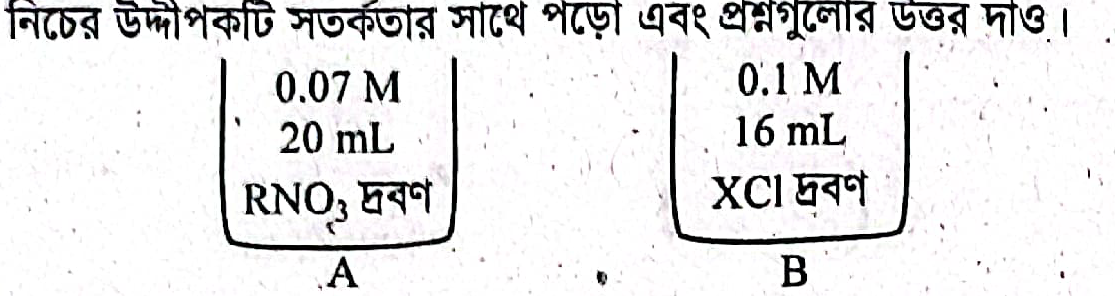 নিচের উদ্দীপকটি সতর্কতার সাথে পড়ো এবং প্রশ্নগুলোর উত্তর দাও।
0.07 M
20 mL
RNO₃ দ্রবণ
A
0.1 M
16 mL
XCl দ্রবণ
B